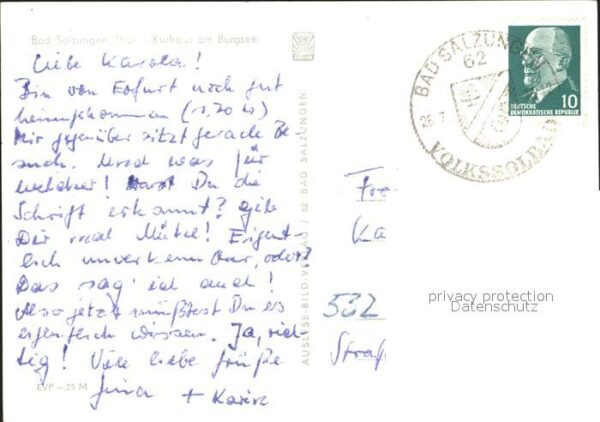 Bad Salzungen/Thür. - Kurhaus am Burgsee
Liebe Karola!
Bin von Erfurt noch gut
heimgekommen (1,20 h)
Mir gegenüber sitzt gerade Be
such. Und was für
welcher! Hast Du die
Schrift erkannt? gib
Dir mal Mühe! Eigent-
lich unverkennbar, oder?
Das sag' ich auch!
Also jetzt müßtest Du es
eigentlich wissen. Ja, rich
tig! Viele liebe Grüße
+ Karin
EVP -,25 M
AUSLESE-BILD-VERLAG / 62 BAD SALZUNGEN
BAD SALZUNGEN
62
VOLKSSOLBAD
DEUTSCHE
DEMOKRATISCHE REPUBLIK
10
Fr
Ka
532
Straß
privacy protection
Datenschutz